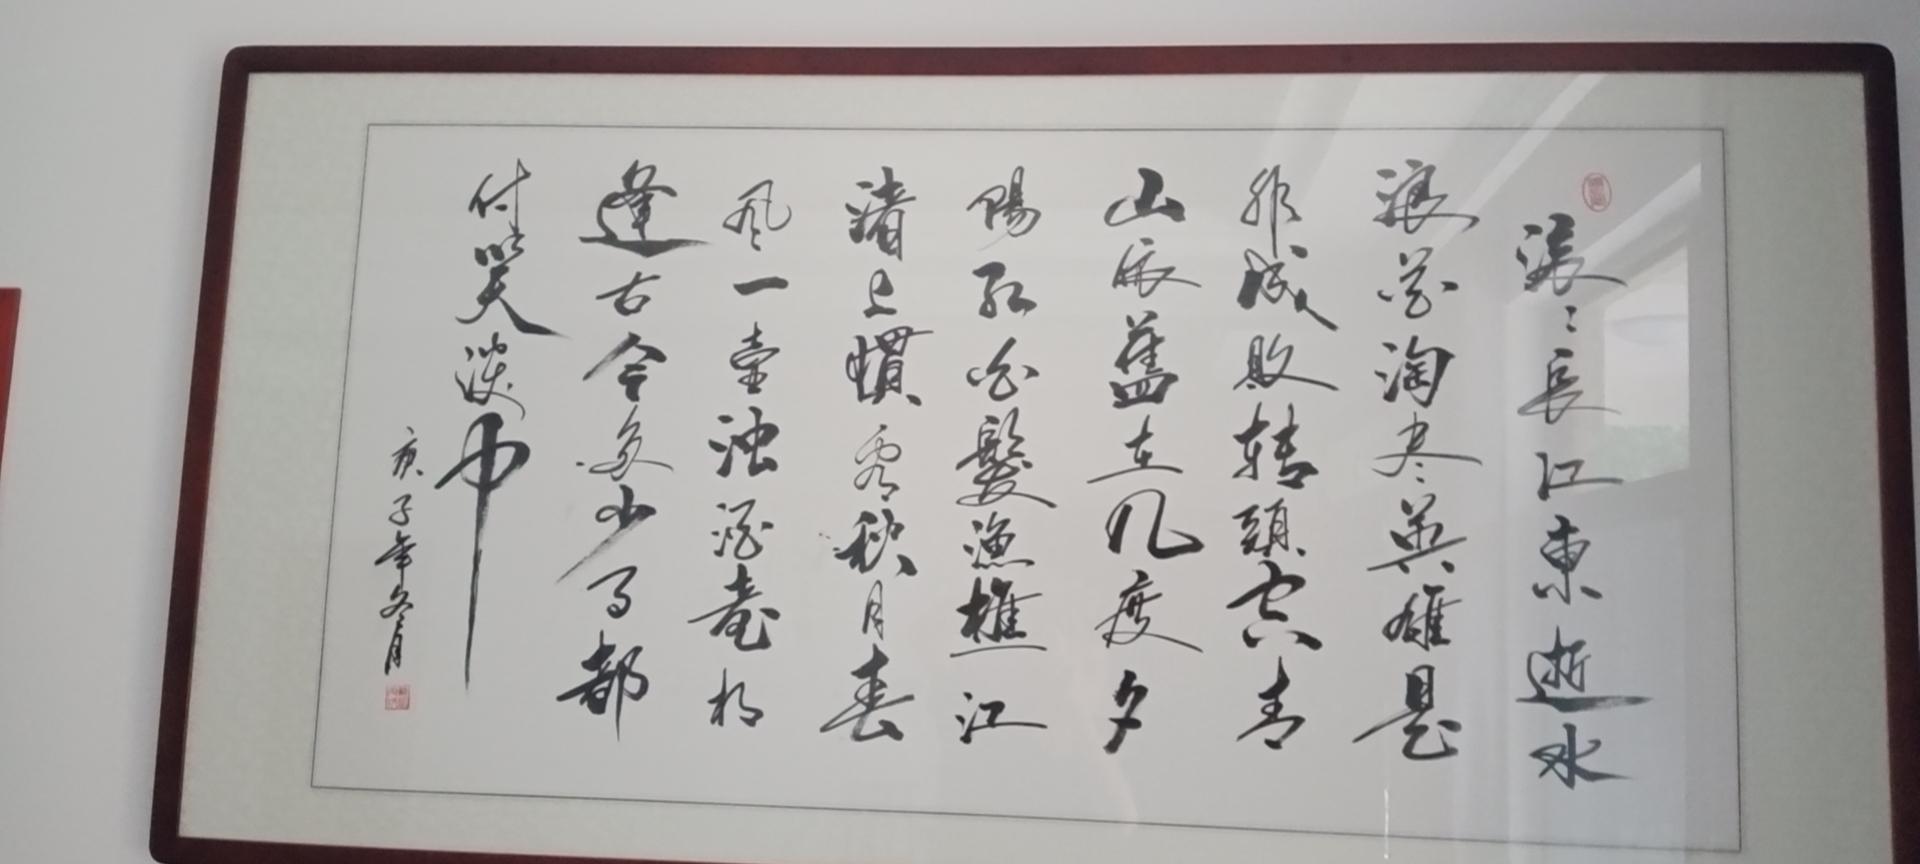 滚〻長江東逝水
浪花淘尽英雄是
非成敗转頭空青
山依舊在几度夕
陽红白髮漁樵江
渚上慣看秋月春
风一壶浊酒喜相
逢古今多少事都
付笑谈中
庚子年冬月